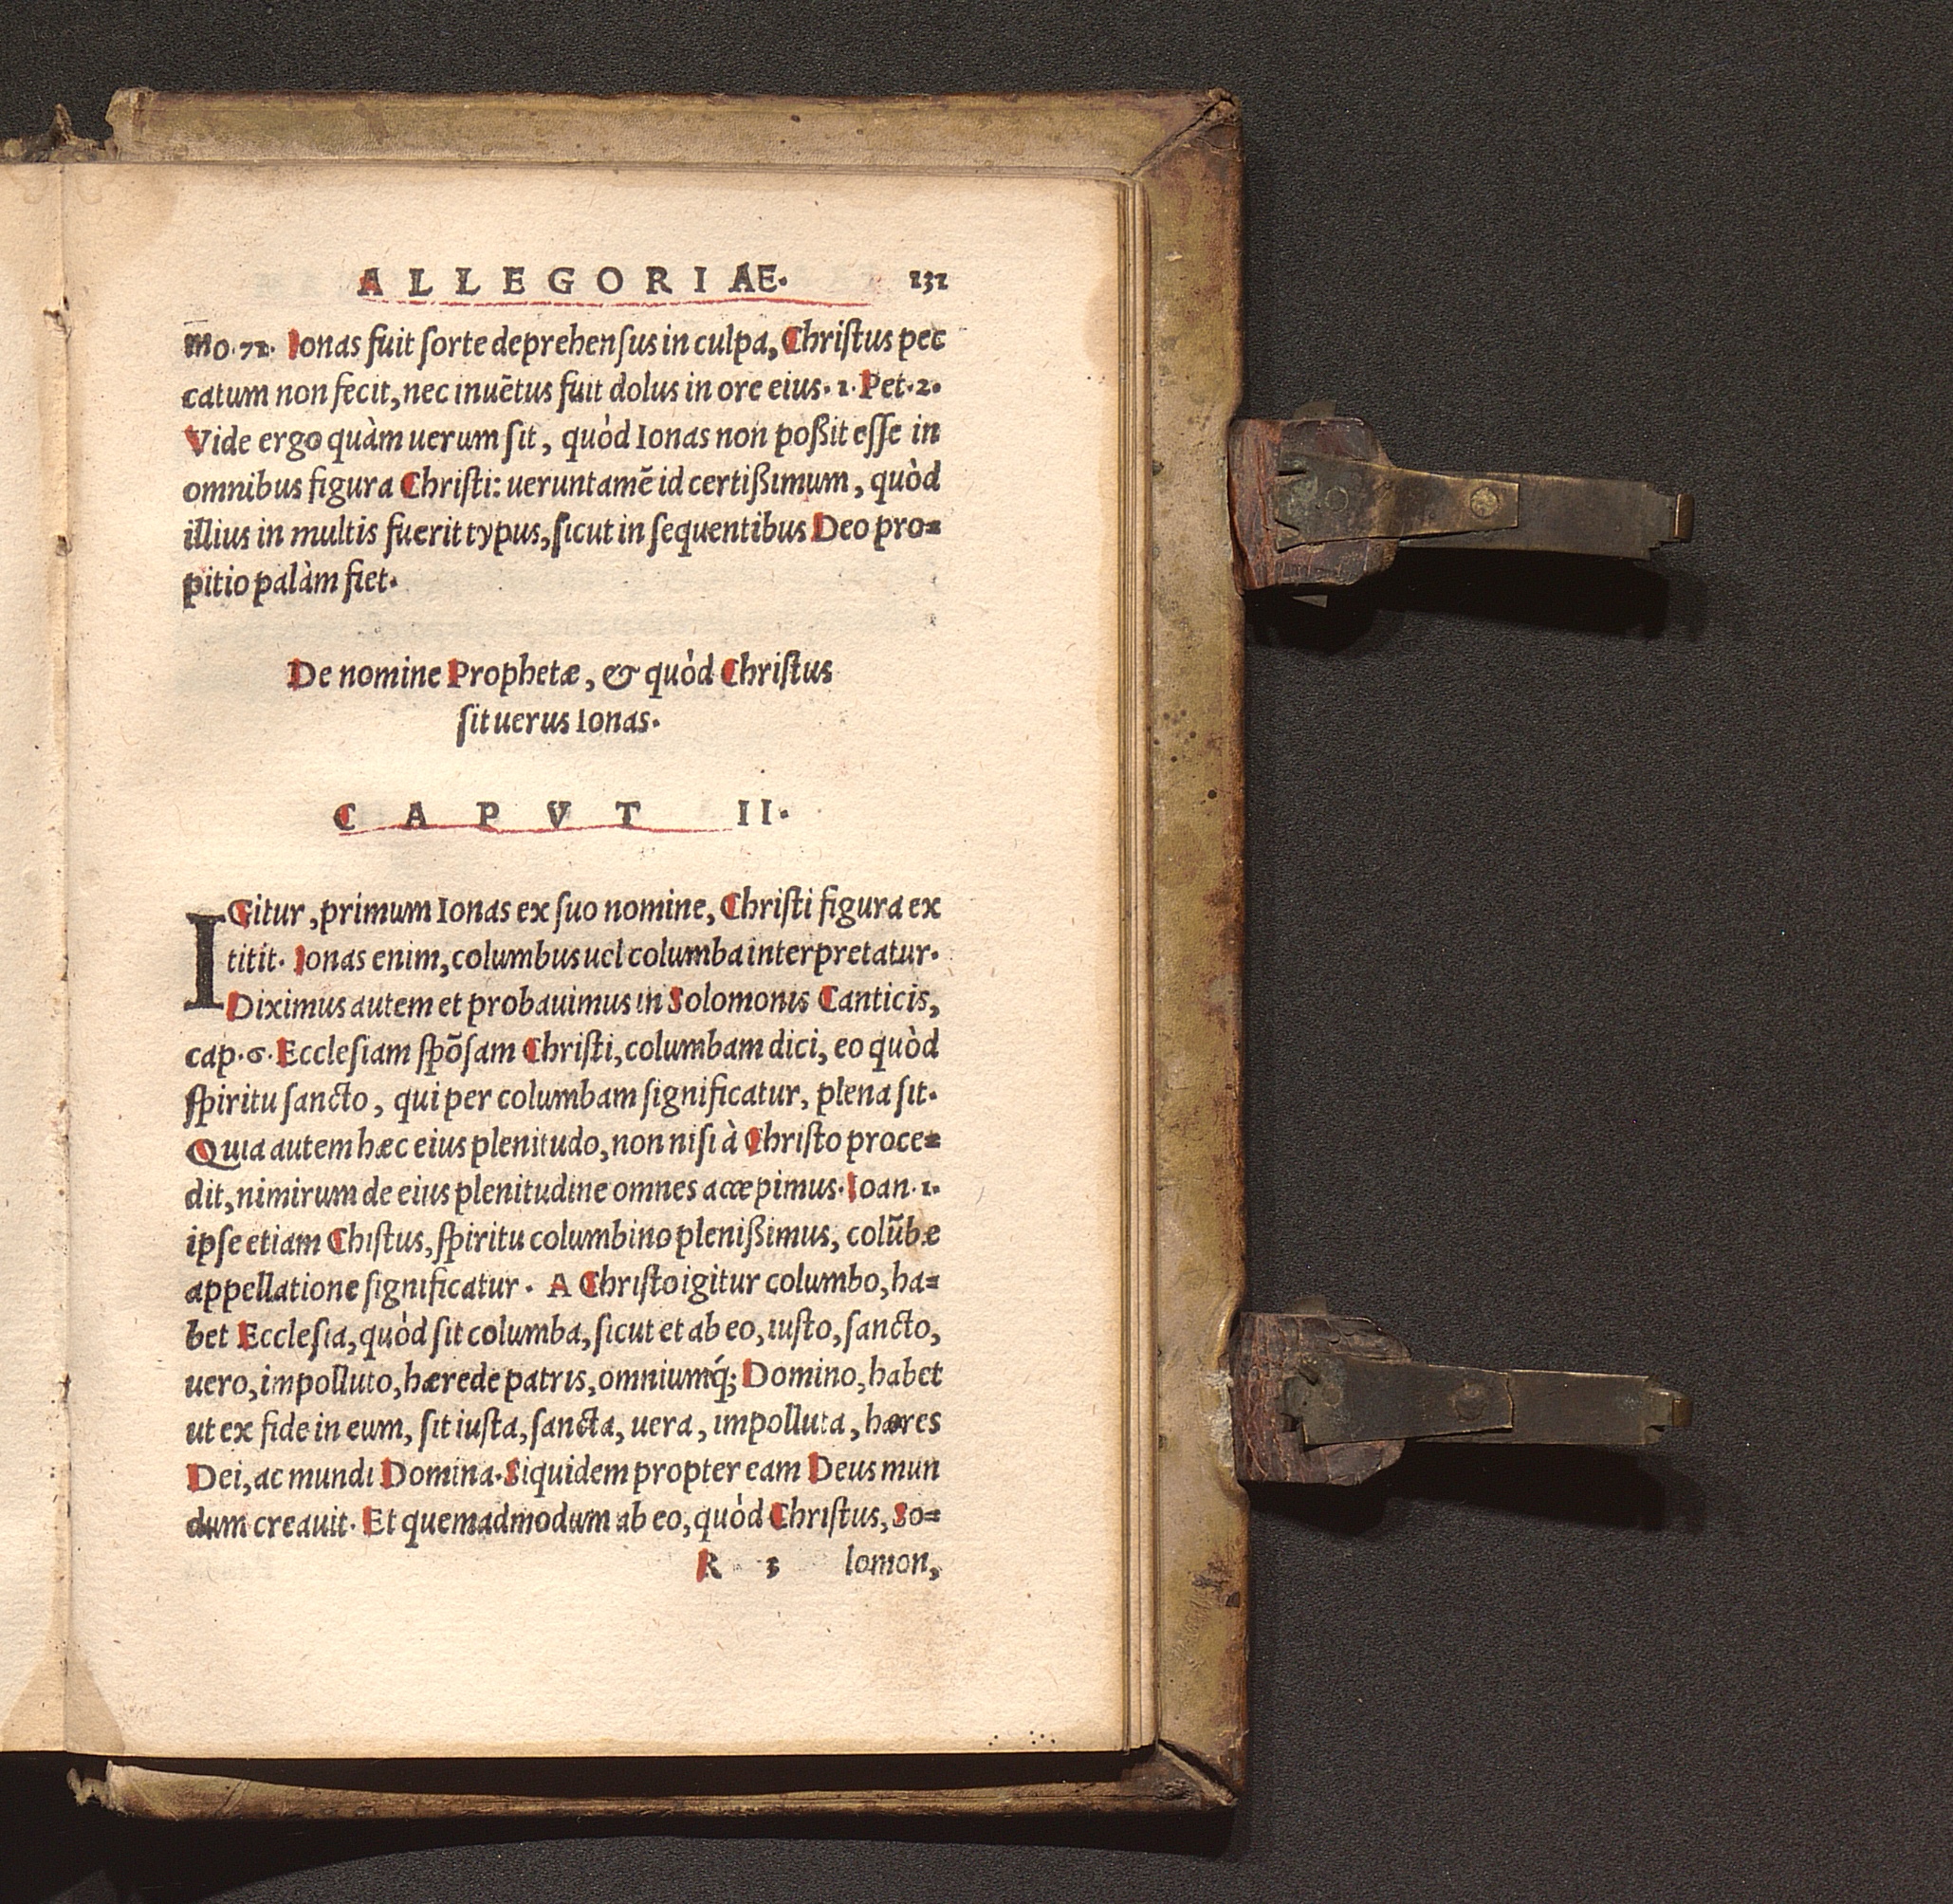 ALLEGORIAE. 131
mo. 72. Ionas fuit ſorte deprehenſus in culpa, Chriſtus pec
catum non fecit, nec inuẽtus fuit dolus in ore eius. 1. Pet. 2.
Vide ergo quàm uerum ſit, quòd Ionas non poßit eſſe in
omnibus figura Chriſti: ueruntamẽ id certißimum, quòd
illius in multis fuerit typus, ſicut in ſequentibus Deo pro=
pitio palàm fiet.
De nomine Prophetæ, & quòd Chriſtus
ſit uerus Ionas.
CAPVT II.
IGitur, primum Ionas ex ſuo nomine, Chriſti figura ex
titit. Ionas enim, columbus uel columba interpretatur.
Diximus autem et probauimus in Solomonis Canticis,
cap. 6. Eccleſiam ſpõſam Chriſti, columbam dici, eo quòd
ſpiritu ſancto, qui per columbam ſignificatur, plena ſit.
Quia autem hæc eius plenitudo, non niſi à Chriſto proce=
dit, nimirum de eius plenitudine omnes accepimus. Ioan. 1.
ipſe etiam Chiſtus, ſpiritu columbino plenißimus, colũbæ
appellatione ſignificatur. A Chriſto igitur columbo, ha=
bet Eccleſia, quòd ſit columba, ſicut et ab eo, iuſto, ſancto,
uero, impolluto, hærede patris, omniumq́; Domino, habet
ut ex fide in eum, ſit iuſta, ſancta, uera, impolluta, hæres
Dei, ac mundi Domina. Siquidem propter eam Deus mun
dum creauit. Et quemadmodum ab eo, quòd Chriſtus, So=
R 3 lomon,